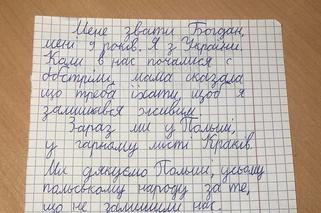 Мене звати Богдан,
мені 9 років. Я з України.
Коли в нас почалися
обстріли, мама сказала
що треба їхати, щоб я
залишався живим.
Зараз ми у Польщі,
у гарному місті Краків.
Ми дякуємо Польщі, усьому
польському народу за те,
що не залишили нас.